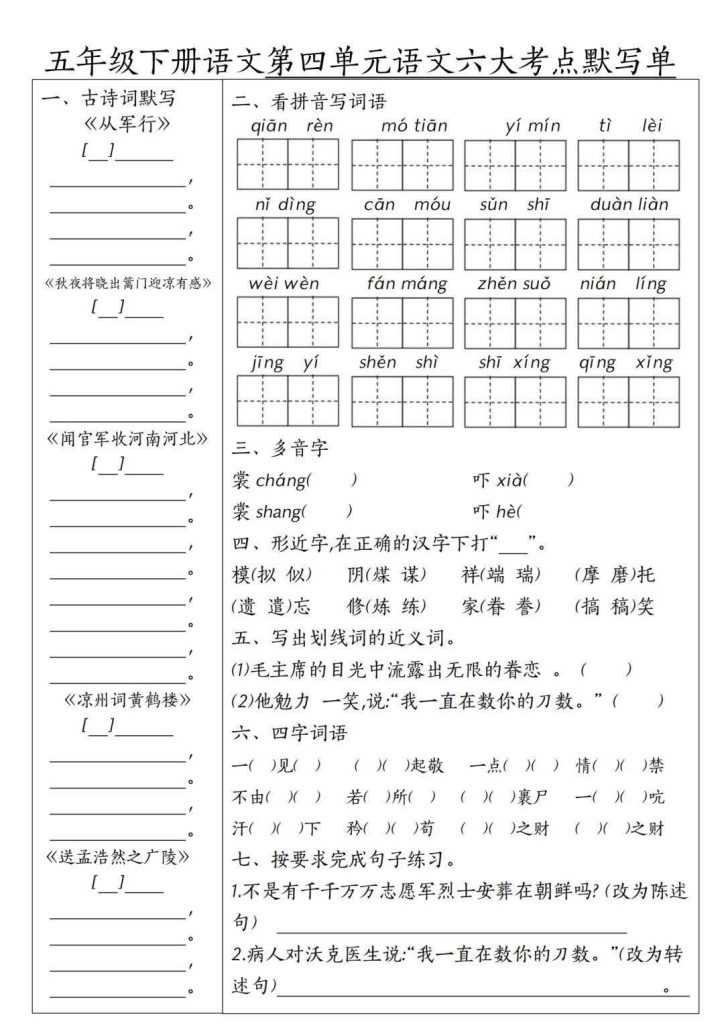 五年级下册语文第四单元语文六大考点默写单
一、古诗词默写
《从军行》
[__]______
______________，
______________。
______________，
______________。
《秋夜将晓出篱门迎凉有感》
[__]____
______________，
______________。
______________，
______________。
《闻官军收河南河北》
[__]____
______________，
______________。
______________，
______________。
______________，
______________。
______________，
______________。
《凉州词黄鹤楼》
[__]____
______________，
______________。
______________，
______________。
《送孟浩然之广陵》
[__]____
______________，
______________。
______________，
______________。
二、看拼音写词语
qiān rèn mó tiān yí mín tì lèi
nǐ dìng cān móu sǔn shī duàn liàn
wèi wèn fán máng zhěn suǒ nián líng
jīng yí shěn shì shī xíng qīng xǐng
三、多音字
裳 cháng( ) 吓 xià( )
裳 shang( ) 吓 hè(
四、形近字,在正确的汉字下打“___”。
模(拟 似) 阴(煤 谋) 祥(端 瑞) (摩 磨)托
(遗 遣)忘 修(炼 练) 家(眷 誊) (搞 稿)笑
五、写出划线词的近义词。
(1)毛主席的目光中流露出无限的眷恋 。 ( )
(2)他勉力 一笑,说:“我一直在数你的刀数。” ( )
六、四字词语
一( )见( ) ( )( )起敬 一点( )( ) 情( )( )禁
不由( )( ) 若( )所( ) ( )( )裹尸 一( )( )吭
汗( )( )下 矜( )( )苟 ( )( )之财 ( )( )之财
七、按要求完成句子练习。
1.不是有千千万万志愿军烈士安葬在朝鲜吗? (改为陈述
句) ______________________________
2.病人对沃克医生说:“我一直在数你的刀数。”(改为转
述句)______________________________。